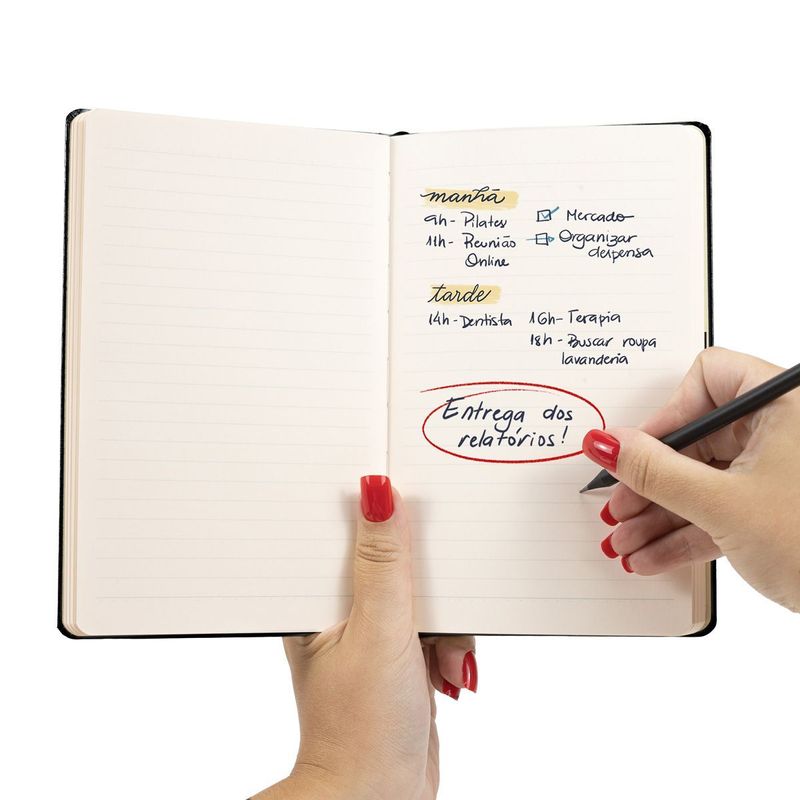 manhã
9h - Pilates
11h - Reunião
Online
Mercado
Organizar
despensa
tarde
14h - Dentista
16h - Terapia
18h - Buscar roupa
lavanderia
Entrega dos
relatórios!